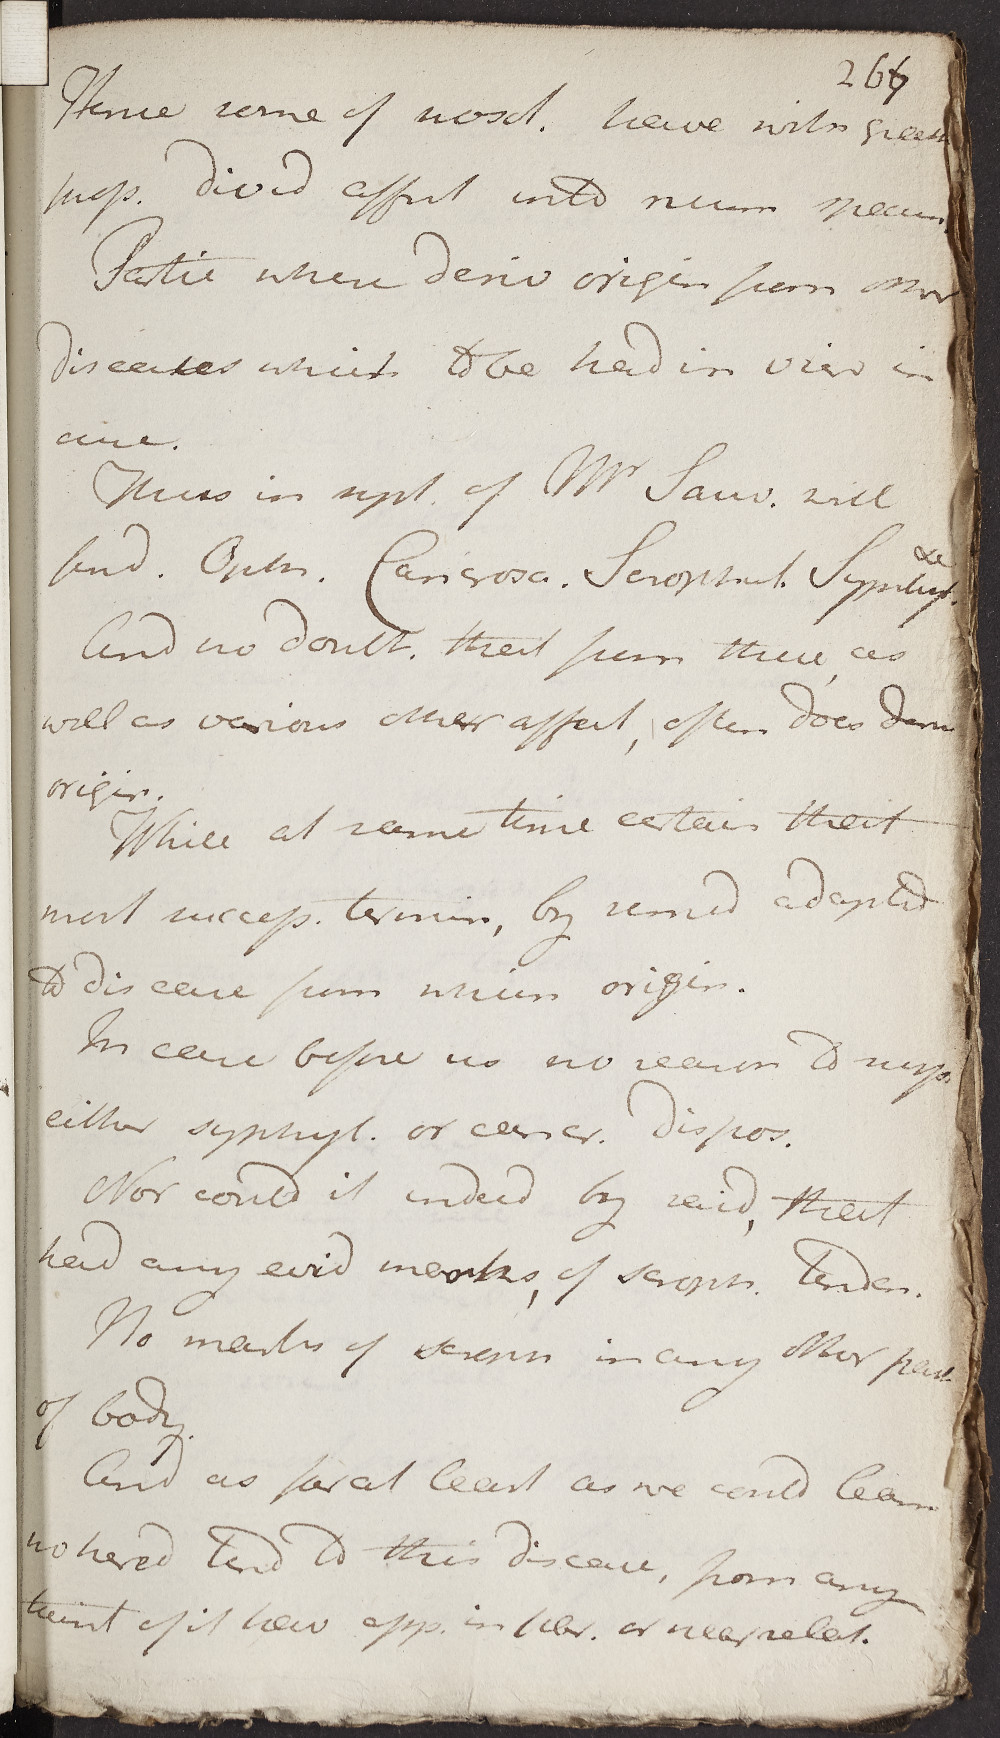 267
Hence some of nosol. have with great
prop. divid affect into num specim
Partic where deriv origin from other
diseases which to be had in view in
cure.
Thus in syst. of Mr Sauv. will
find. Opth. Cancrosa. Scrophul. Syphilit. &c
And no doubt. that from these, as
well as various other affect, often does deriv
origin.
While at same time certain that
most success. termin, by remed adapted
to disease from which origin.
In case before us no reason to susp.
either syphyl. or cancr. dispos.
Nor could it indeed by said, that
had any evid marks, of scroph. tenden.
No marks of scroph in any other part
of body.
And as far at least as we could learn
no hered tend to this disease, from any
taint of it hav app. in par. or near relat.